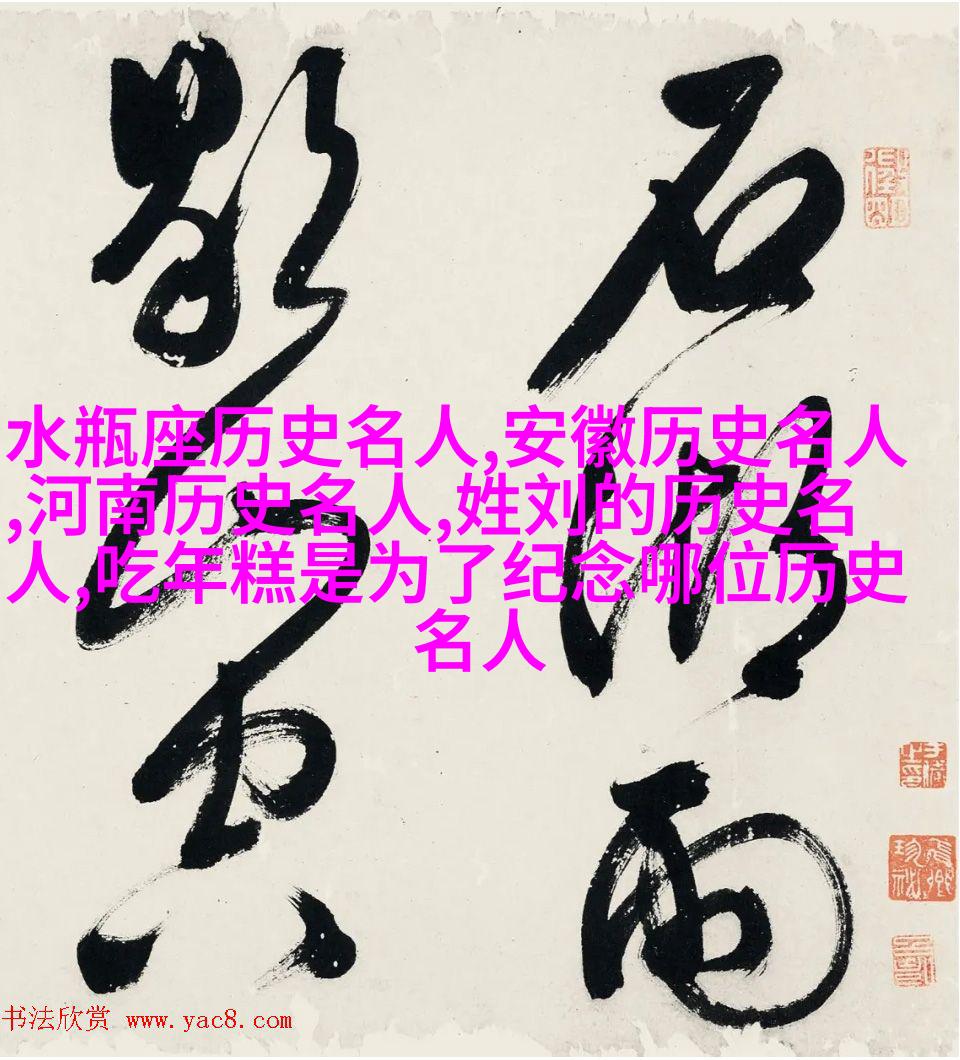 石湖雨
歇山空
水瓶座历史名人,安徽历史名人
,河南历史名人,姓刘的历史名
人,吃年糕是为了纪念哪位历史
名人
书法欣赏 www.yac8.com